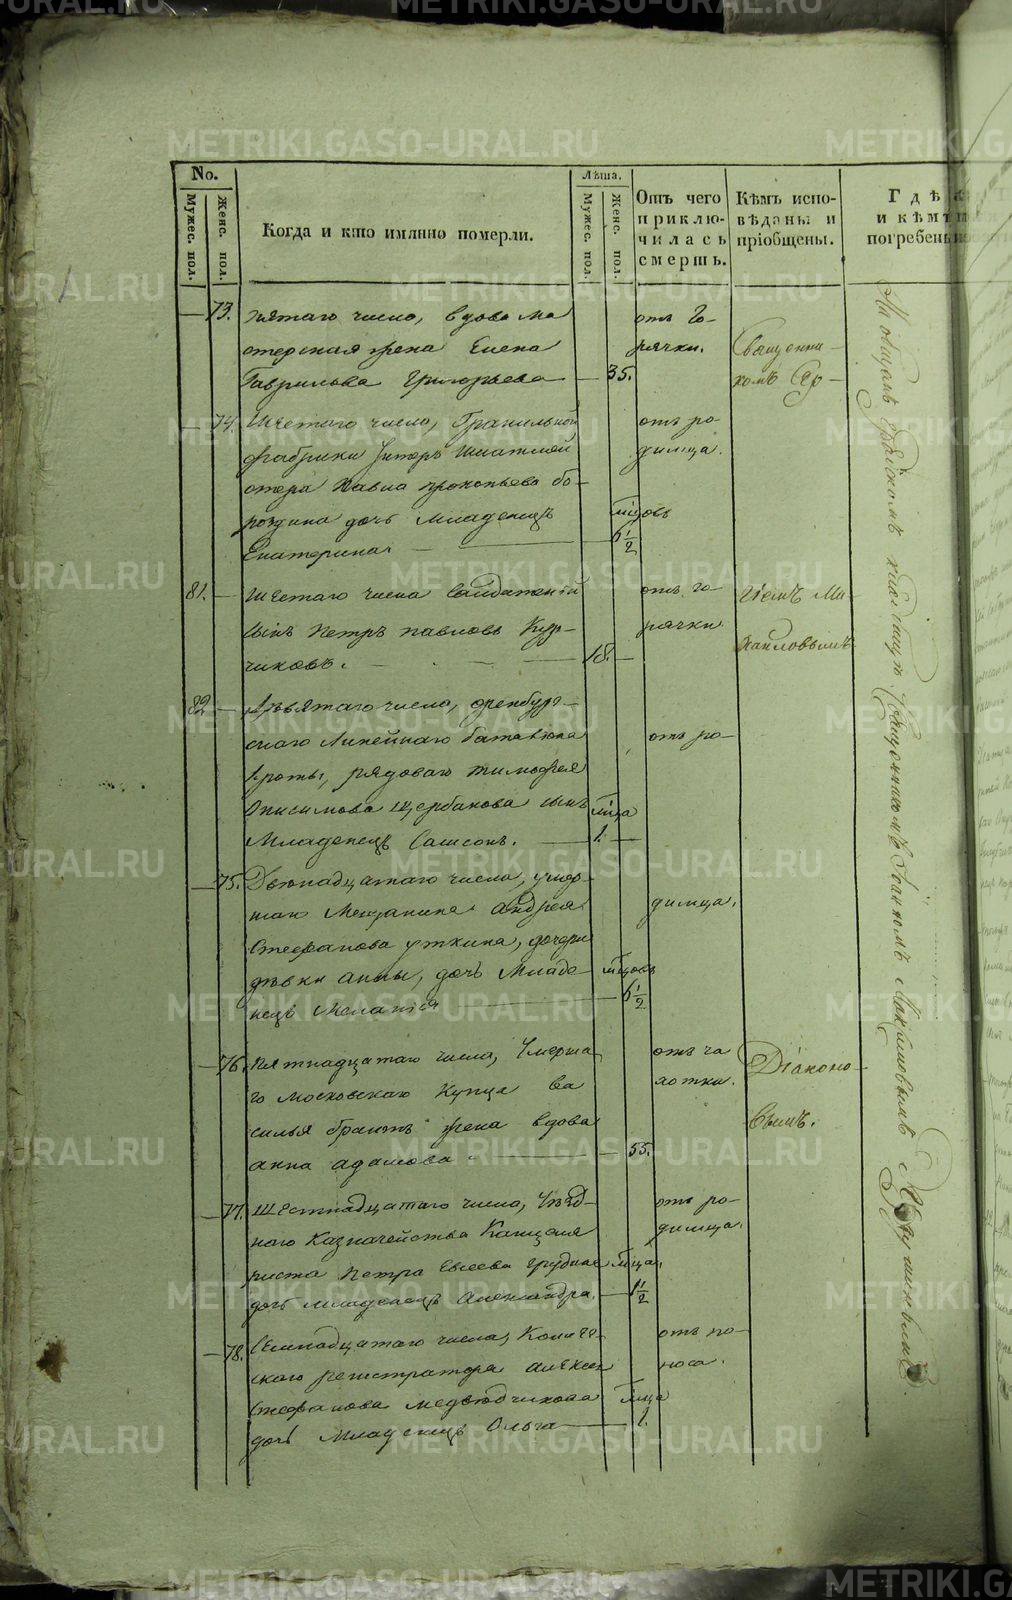 METRIKI.GASO-URAL.RU
No.
Мужес. пол.
Женс. пол.
Когда и кто имянно померли.
Лѣта.
Мужес. пол.
Женс. пол.
Отъ чего
приклю-
чилась
смерть.
Кѣмъ испо-
вѣданы и
пріобщены.
Гдѣ
и кѣмъ
погребены
73. пятаго числа, вдова ма
стерская жена Елена
Гаврилова Григорьева 35.
отъ го-
рячки.
Священни-
комъ Сер-
74. Шестаго числа, Гранильной
фабрики Унтеръ
Павла Прокопьева Бо-
роздина дочь младенецъ
Екатерина мцовъ 6 1/2
отъ ро-
димца.
81. шестаго числа Салдатскій
сынъ Петръ Павловъ Кур-
чиковъ. 18.
отъ го-
рячки
гіемъ Ми-
хайловымъ
82 Девятаго числа, Оренбург-
скаго Линейнаго баталіона
роты, рядоваго Тимофея
Онисимова Щербакова сынъ
Младенецъ Самсонъ. мца 1.
отъ ро-
75. Двенадцатаго числа, умер-
шаго Мещанина Андрея
Стефанова Уткина, дочери
дѣвки Анны, дочь Младе-
нецъ Меланія мцовъ 6 1/2
димца.
76. пятнадцатаго числа, Умерша
го Московскаго Купца Ва
силья Брантъ жена вдова
Анна Адамова 55.
отъ ча
хотки.
Діаконо-
вымъ.
77. Шестнадцатаго числа, Уѣзд-
наго Казначейства Канцеля
риста Петра Евсеева Грудина
дочь младенецъ Александра. мца. 1 1/2
отъ ро-
димца.
78. Семнадцатаго числа, Коллеж-
скаго регистратора Алексея
Стефанова Медвѣдчикова
дочь Младенецъ Ольга мца 1.
отъ по-
носа.
На общемъ градскомъ кладбищѣ Священникомъ Іоанномъ Максимовымъ